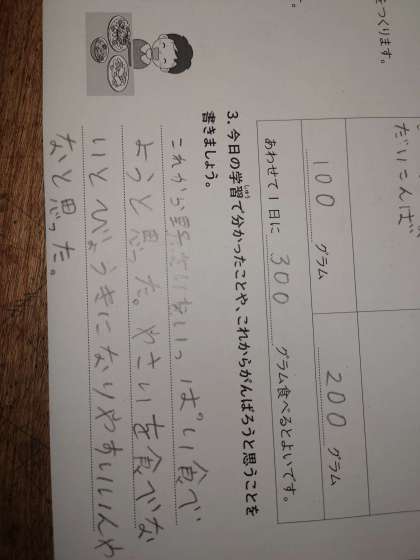 をつくります。
だいこんば
100 グラム
200 グラム
あわせて1日に 300 グラム食べるとよいです。
3. 今日の学習で分かったことや、これからがんばろうと思うことを
書きましょう。
これから野さいをいっぱい食べ
ようと思った。やさいを食べな
いとびょうきになりやすいいんや
なと思った。